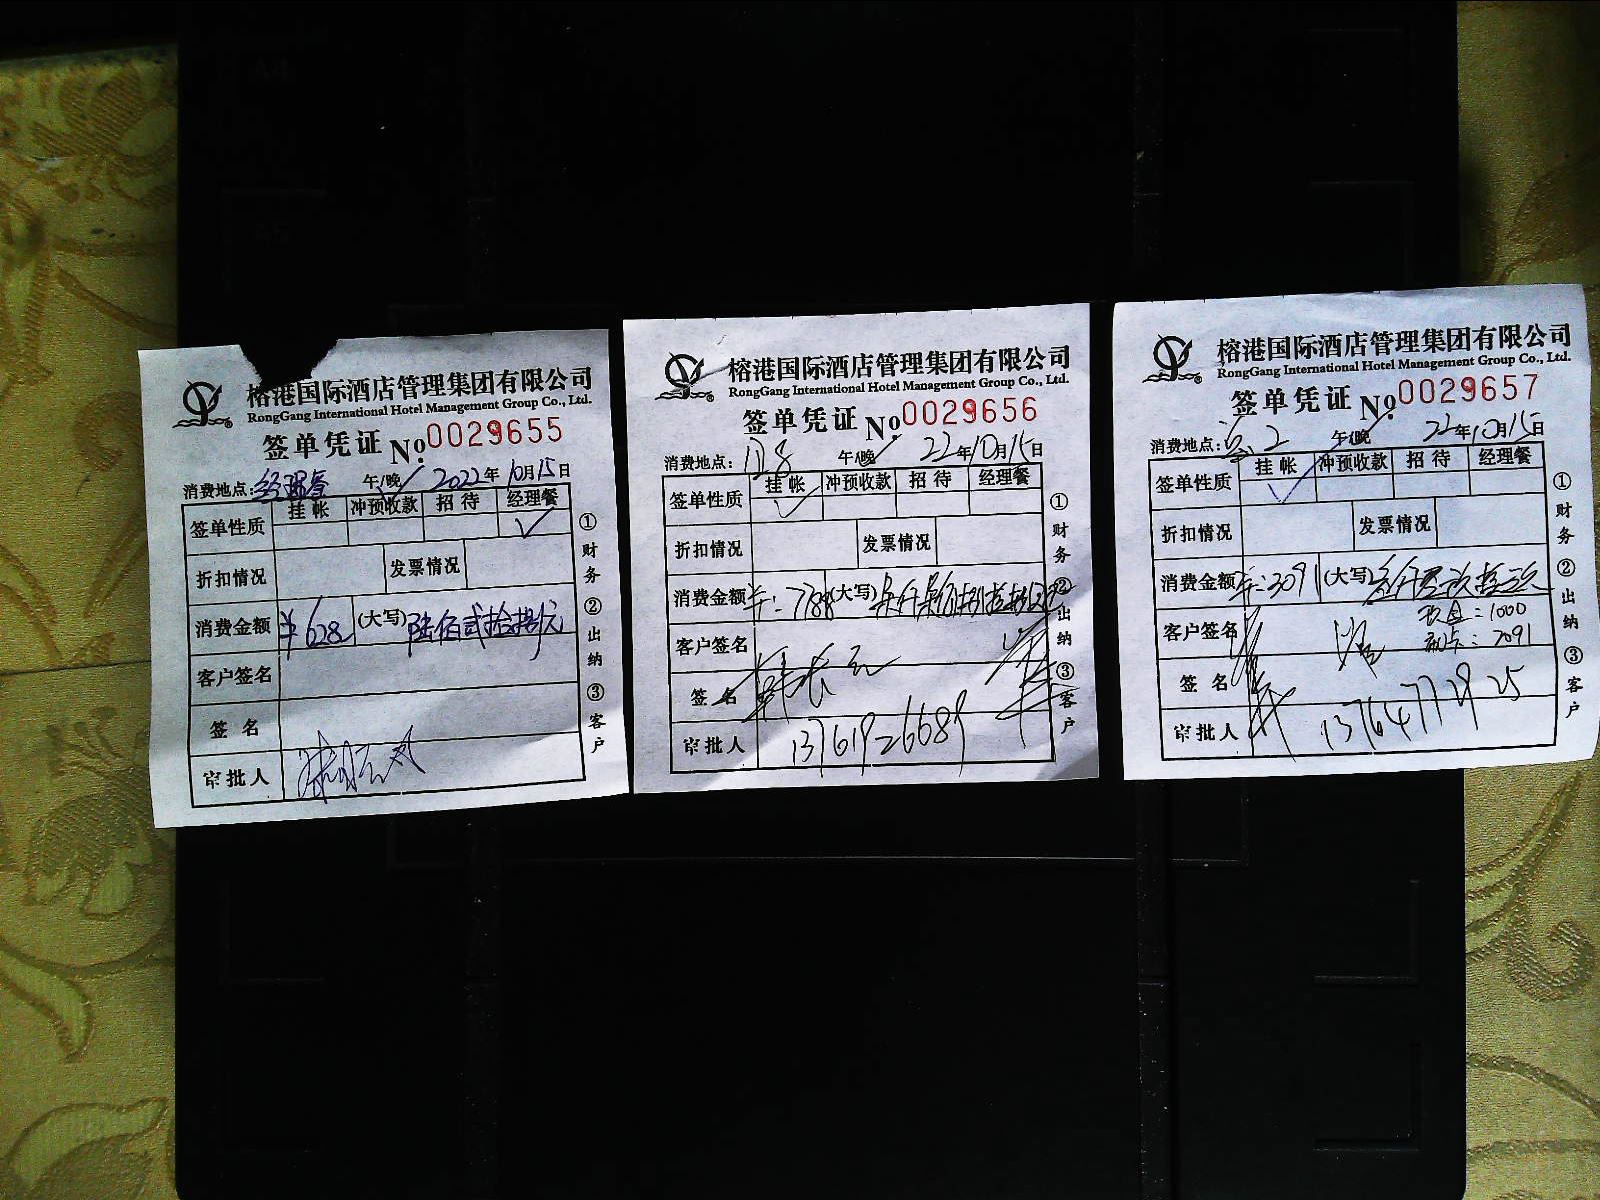 榕港国际酒店管理集团有限公司
RongGang International Hotel Management Group Co., Ltd.
签单凭证 No. 0029655
消费地点: 经理餐 午/晚 2022年10月15日
签单性质 挂帐 冲预收款 招待 经理餐 ✓
折扣情况 发票情况
消费金额 ¥628 (大写) 陆佰贰拾捌元
客户签名
签名
审批人
①财务 ②出纳 ③客户
榕港国际酒店管理集团有限公司
RongGang International Hotel Management Group Co., Ltd.
签单凭证 No. 0029656
消费地点: 128 午/晚 22年10月15日
签单性质 挂帐 ✓ 冲预收款 招待 经理餐
折扣情况 发票情况
消费金额 (大写)
客户签名
签名
审批人 13761926689
①财务 ②出纳 ③客户
榕港国际酒店管理集团有限公司
RongGang International Hotel Management Group Co., Ltd.
签单凭证 No. 0029657
消费地点: 2 午/晚 22年10月15日
签单性质 挂帐 ✓ 冲预收款 招待 经理餐
折扣情况 发票情况
消费金额 3091 (大写)
客户签名 : 1000
: 2091
签名
审批人
①财务 ②出纳 ③客户